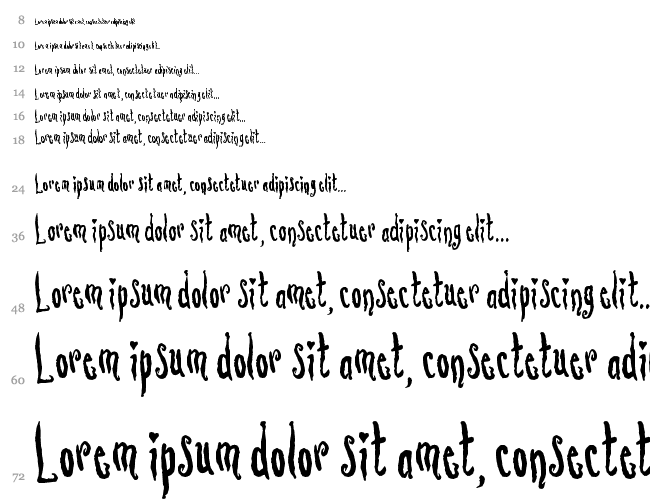 8 Lorem ipsum dolor sit amet, consectetuer adipiscing elit...
10 Lorem ipsum dolor sit amet, consectetuer adipiscing elit...
12 Lorem ipsum dolor sit amet, consectetuer adipiscing elit...
14 Lorem ipsum dolor sit amet, consectetuer adipiscing elit...
16 Lorem ipsum dolor sit amet, consectetuer adipiscing elit...
18 Lorem ipsum dolor sit amet, consectetuer adipiscing elit...
24 Lorem ipsum dolor sit amet, consectetuer adipiscing elit...
36 Lorem ipsum dolor sit amet, consectetuer adipiscing elit...
48 Lorem ipsum dolor sit amet, consectetuer adipiscing elit..
60 Lorem ipsum dolor sit amet, consectetuer adi
72 Lorem ipsum dolor sit amet, consectet